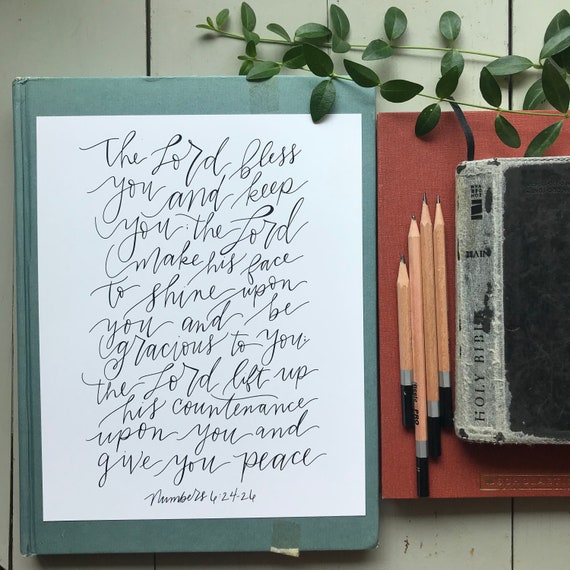 The Lord bless
you and keep
you; the Lord
make his face
to shine upon
you and be
gracious to you;
the Lord lift up
his countenance
upon you and
give you peace
Numbers 6:24-26
HOLY BIBLE